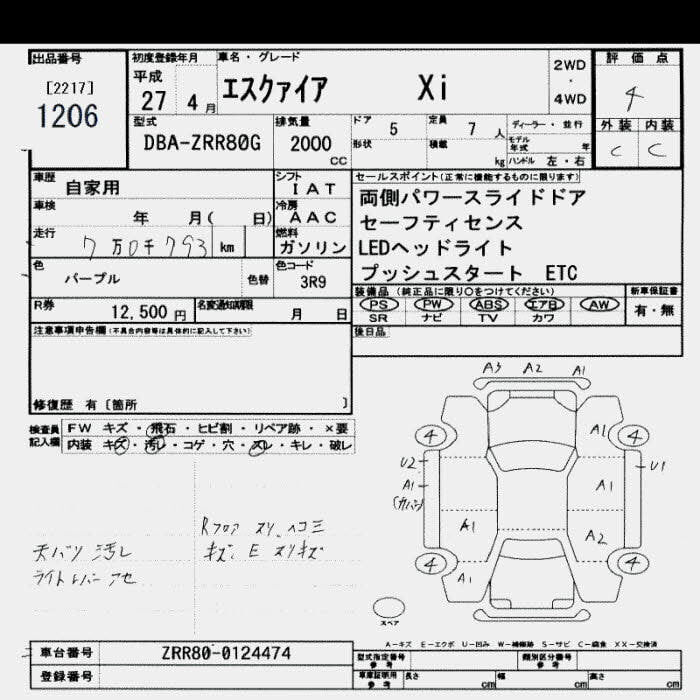 出品番号 初度登録年月 車名・グレード 評価点
[2217] 平成 エスクァイア Xi 2WD・4WD 4
1206 27 4月 外装 内装
C C
型式 排気量 ドア 5 定員 7人 ディーラー・並行
DBA-ZRR80G 2000 CC 形状 積載 kg モデル年式 年
ハンドル 左・右
車歴 自家用 シフト IAT セールスポイント(正常に機能するものに限ります)
車検 年 月( 日) 冷房 AAC 両側パワースライドドア
走行 7万0千793 km 燃料 ガソリン セーフティセンス
色 パープル 色替 色コード 3R9 LEDヘッドライト
プッシュスタート ETC
R券 12,500円 名変通知期限 月 日 装備品(純正品に限り○をつけてください) 新車保証書
PS PW ABS エアB AW 有・無
SR ナビ TV カワ
注意事項申告欄(不具合内容等は具体的に記入して下さい) 後日品
修復歴 有〔箇所 〕
検査員記入欄 FW キズ・飛石・ヒビ割・リペア跡・×要
内装 キズ・汚レ・コゲ・穴・スレ・キレ・破レ
A3 A2 A1
4 A1 4
U2 U1
A1 A1
(カバー)
A1 A2
4 4
A1
Rフロア スリ、ヘコミ
キズ、E スリキズ
天バリ 汚レ
スペア
A-キズ E-エクボ U-凹み W-補修跡 S-サビ C-腐食 XX-交換済
車台番号 ZRR80-0124474 型式指定番号 参考 類別区分番号 参考
登録番号 車庫証明用 参考 長さ cm 幅 cm 高さ cm